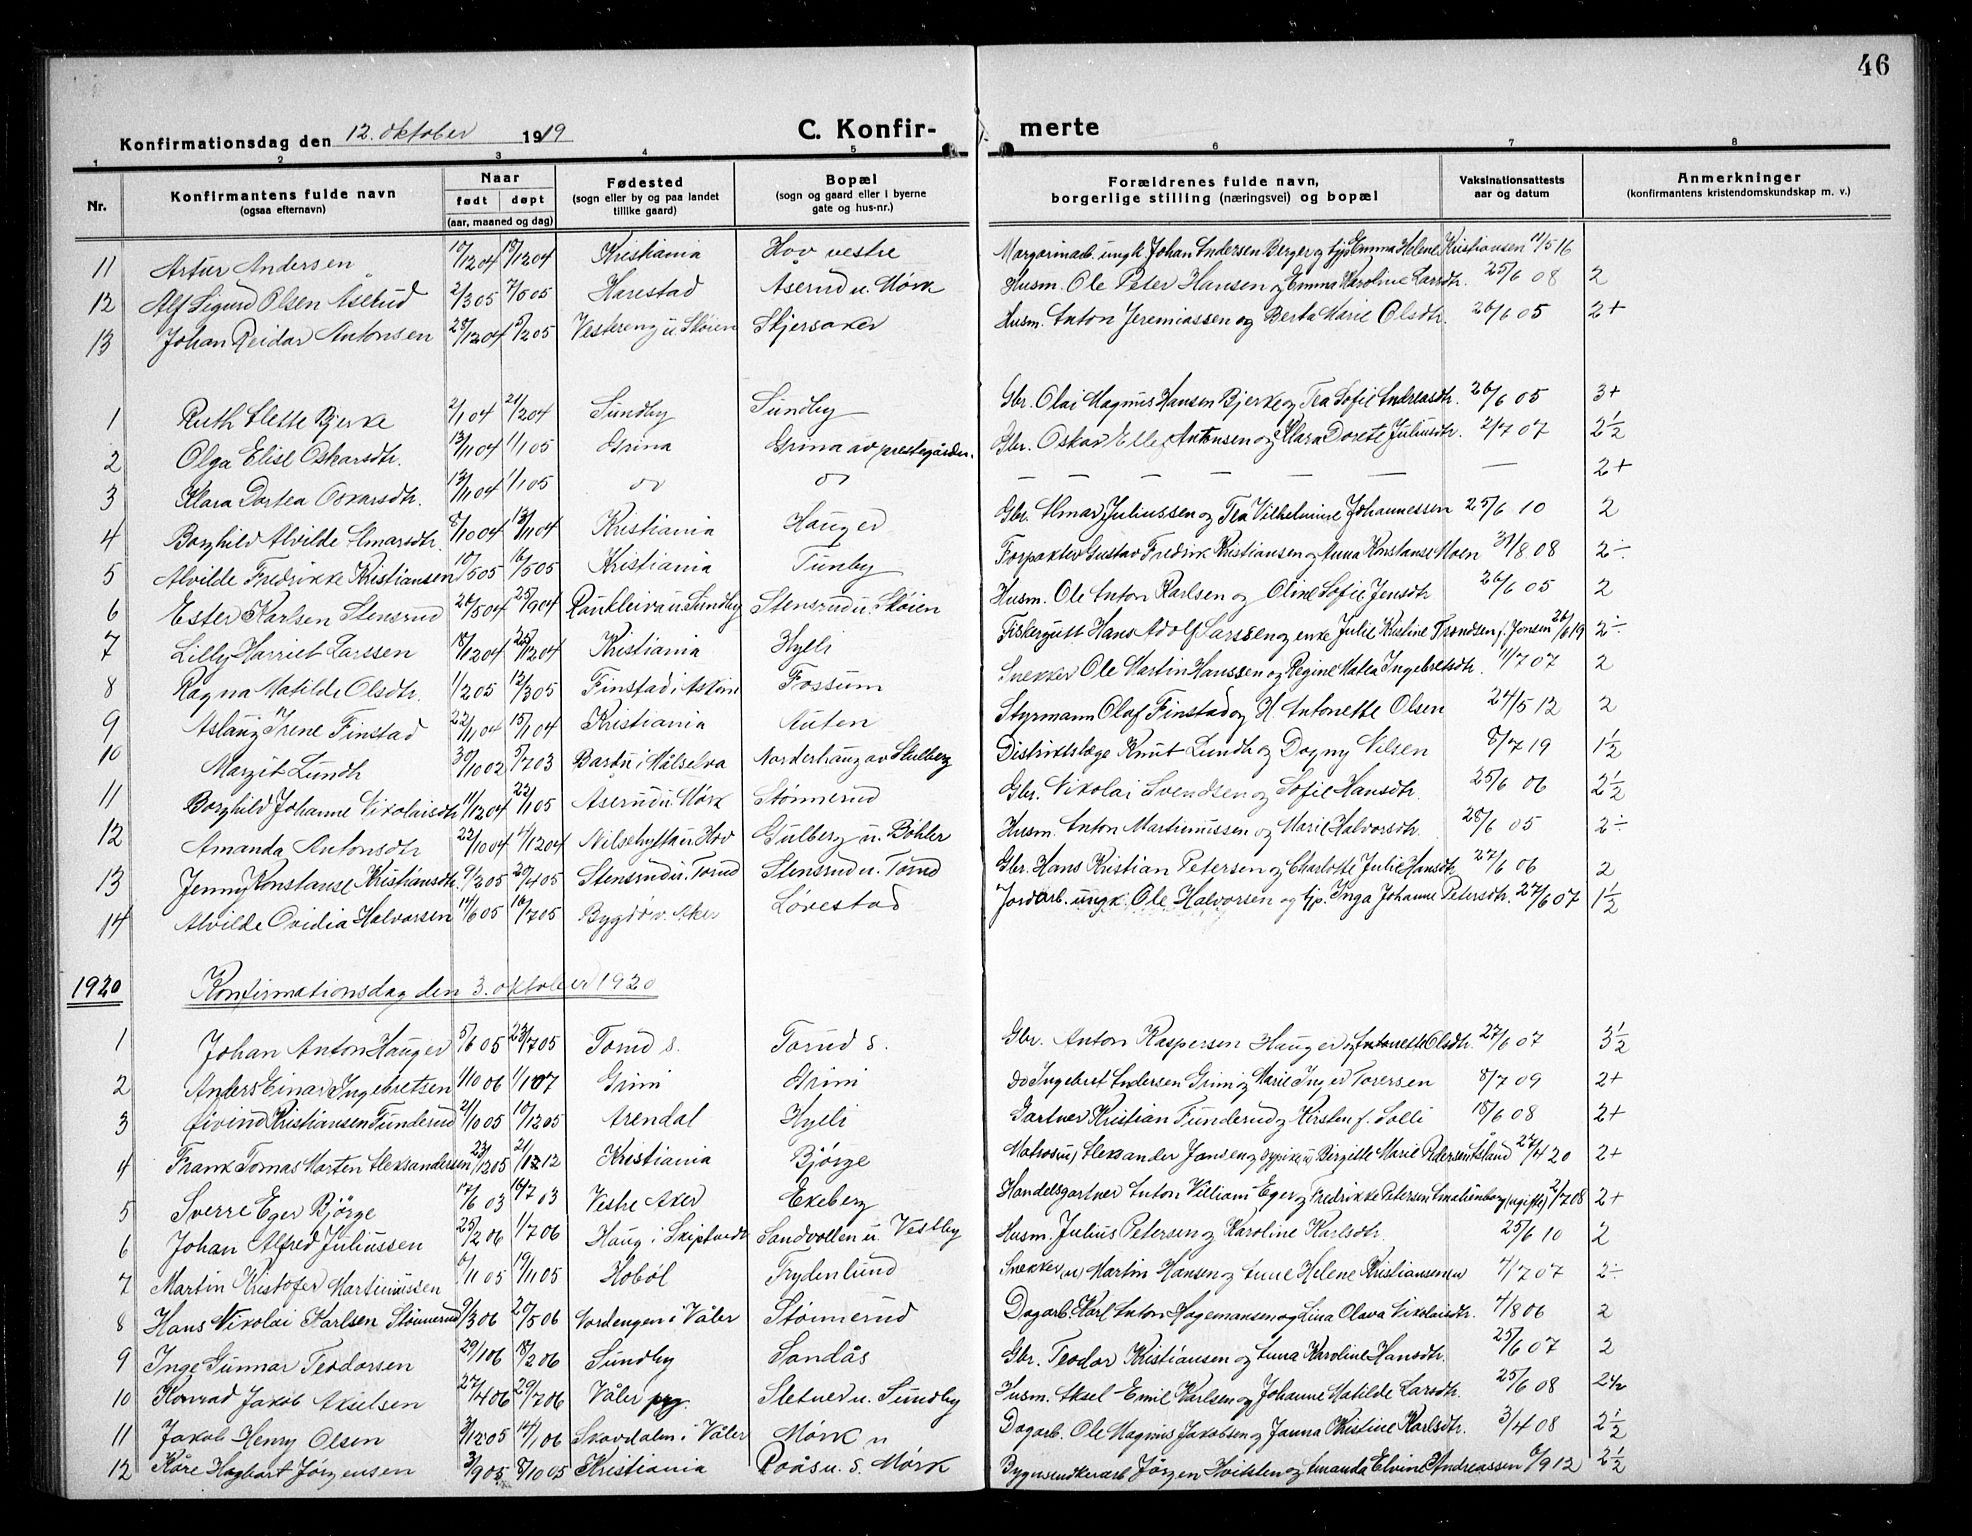 46
Konfirmationsdag den 12. oktober 1919 C. Konfir- merte
1 2 3 4 5 6 7 8
Nr. Konfirmantens fulde navn (ogsaa efternavn) Naar født døpt (aar, maaned og dag) Fødested (sogn eller by og paa landet tillike gaard) Bopæl (sogn og gaard eller i byerne gate og hus-nr.) Forældrenes fulde navn, borgerlige stilling (næringsvei) og bopæl Vaksinationsattests aar og datum Anmerkninger (konfirmantens kristendomskundskap m. v.)
11 Artur Andersen 10/12 04 Kristiania Hov vestre Margarinarb. ungk. Johan Andersen Berger og Emma Helene Kristiansen 11/5 16
12 Alf Sigurd Olsen Aserud 2/3 05 7/5 05 Harestad Åserud u. Mørk Husm. Ole Peter Hansen og Emma Karoline Larsdtr. 25/6 08 2
13 Johan Reidar Antonsen 28/12 04 5/2 05 Vestereng u. Skøien Skjersaker Husm. Anton Jeremiassen og Berta Marie Olsdtr. 26/6 05 2+
1 Ruth Slette Bjerke 2/1 04 21/2 04 Sundby Sundby Gbr. Olai Magnus Hansen Bjerke og Tea Sofie Andreasdtr. 26/6 05 3+
2 Olga Elise Oskarsdtr. 13/11 04 1/1 05 Grina Grina av prestegården. Gbr. Oskar Antonsen og Klara Dorete Juliusdtr. 2/7 07 2½
3 Klara Dortea Oskarsdtr. 13/11 04 1/1 05 do do — — — — — 2+
4 Borghild Alvilde Almarsdtr. 8/10 04 13/11 04 Kristiania Hauger Gbr. Almar Juliussen og Tea Vilhelmine Johannessen 25/6 10 2
5 Alvilde Fredrikke Kristiansen 10/5 05 16/5 05 Kristiania Tunby Forpakter Gustav Fredrik Kristiansen og Anna Konstanse Moen 31/8 08 2÷
6 Ester Karlsen Stensrud 28/5 04 25/9 04 Raukleiva u. Sundby Stensrud u. Skøien Husm. Ole Anton Karlsen og Oline Sofie Jensdtr 26/6 05 2
7 Lilly Harriet Larssen 18/12 04 Kristiania Hylli Fiskergutt Hans Adolf Larssen og enke Julie Kristine Trondsen f. Jonsen 26/6 19 2÷
8 Ragna Matilde Olsdtr. 1/2 05 12/3 05 Finstad i Askim Fossum Snekker Ole Martin Hanssen og Regine Matea Ingebretsdtr. 11/7 07 2
9 Aslaug Irene Finstad 22/11 04 15/1 04 Kristiania Auten Styrmann Olaf Finstad og H. Antonette Olsen 24/5 12 2
10 Margit Lundh 30/10 02 5/7 03 Bardu i Målselva Norderhaug av Skulberg Distriktslæge Knut Lundh og Dagny Nilsen 8/7 19 1½
11 Borghild Johanne Nikolaisdtr 11/12 04 22/1 05 Aserud u. Mørk Stømnerud Gbr. Nikolai Svendsen og Sofie Hansdtr. 25/6 06 2½
12 Amanda Antonsdtr 22/10 04 11/12 04 Nilsehytta u. Hov Gulberg u. Bøhler Husm. Anton Martinussen og Marie Halvorsdtr. 28/6 05 2÷
13 Jenny Konstanse Kristiansdtr. 9/2 05 20/4 05 Stensrud u. Torud Stensrud u. Torud Gbr. Hans Kristian Petersen og Charlotte Julie Hansdtr. 27/6 06 2
14 Alvilde Ovidia Halvorsen 14/6 05 16/7 05 Bygdø v. Aker Løvestad Jordarb. ungk. Ole Halvorsen og tjp. Inga Johanne Petersdtr. 27/6 07 1½
1920 Konfirmationsdag den 3. oktober 1920
1 Johan Anton Hauger 5/6 05 23/7 05 Torud s. Torud s. Gbr. Anton Kaspersen Hauger og Antonette Olsdtr. 27/6 07 3½
2 Anders Einar Ingebretsen 1/10 06 1/1 07 Grimi Grimi Do Ingebret Andersen Grimi og Marie Inger Toversen 8/7 09 2+
3 Øivind Kristiansen Funderud 21/10 05 10/12 05 Arendal Hylli Gartner Kristian Funderud og Kirsten f. Solli 18/6 08 2+
4 Frank Tomas Marten Aleksandersen 23/12 05 21/1 12 Kristiania Bjørge Matros Aleksander Jansen og Birgitte Marie Pedersen 27/4 20 2+
5 Sverre Eger Bjørge 17/6 03 16/7 03 Vestre Aker Ekeberg Handelsgartner Anton Villiam Eger og Fredrikke Petersen Amalienborg (ugifte) 2/7 08 2+
6 Johan Alfred Juliussen 25/2 06 1/7 06 Haug i Skiptvedt Sandvollen u. Vestby Husm. Julius Petersen og Karoline Karlsdtr. 25/6 10 2
7 Martin Kristofer Martinussen 6/11 05 19/11 05 Hobøl Frydenlund Snekker Martin Hansen og Anne Helene Kristiansen 4/7 07 2÷
8 Hans Nikolai Karlsen Stømnerud 9/3 06 20/5 06 Nordengen i Våler Stømnerud Dagarb. Karl Anton Hagemansen og Lina Olava Nikolaisdtr. 4/8 06 2
9 Inge Gunnar Teodorsen 29/1 06 18/2 06 Sundby Sandås Gbr. Teodor Kristiansen og Anna Karoline Hansdtr. 25/6 07 2
10 Konrad Jakob Akselsen 27/4 06 29/7 06 Våler pgj. Sletner u. Sundby Husm. Aksel Emil Karlsen og Johanne Matilde Larsdtr. 25/6 08 2½
11 Jakob Henry Olsen 3/12 05 14/1 06 Skovdalen i Våler Mørk n Dagarb. Ole Magnus Jakobsen og Janna Kristine Karlsdtr. 3/4 08 2½
12 Kåre Hagbart Jørgensen 3/9 05 8/10 05 Kristiania Roås u. s. Mørk Bygnsnekkerarb Jørgen Hvitsten og Amanda Elvine Andreassen 6/9 12 2½